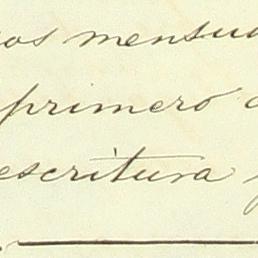 mensua
primero
escritura y